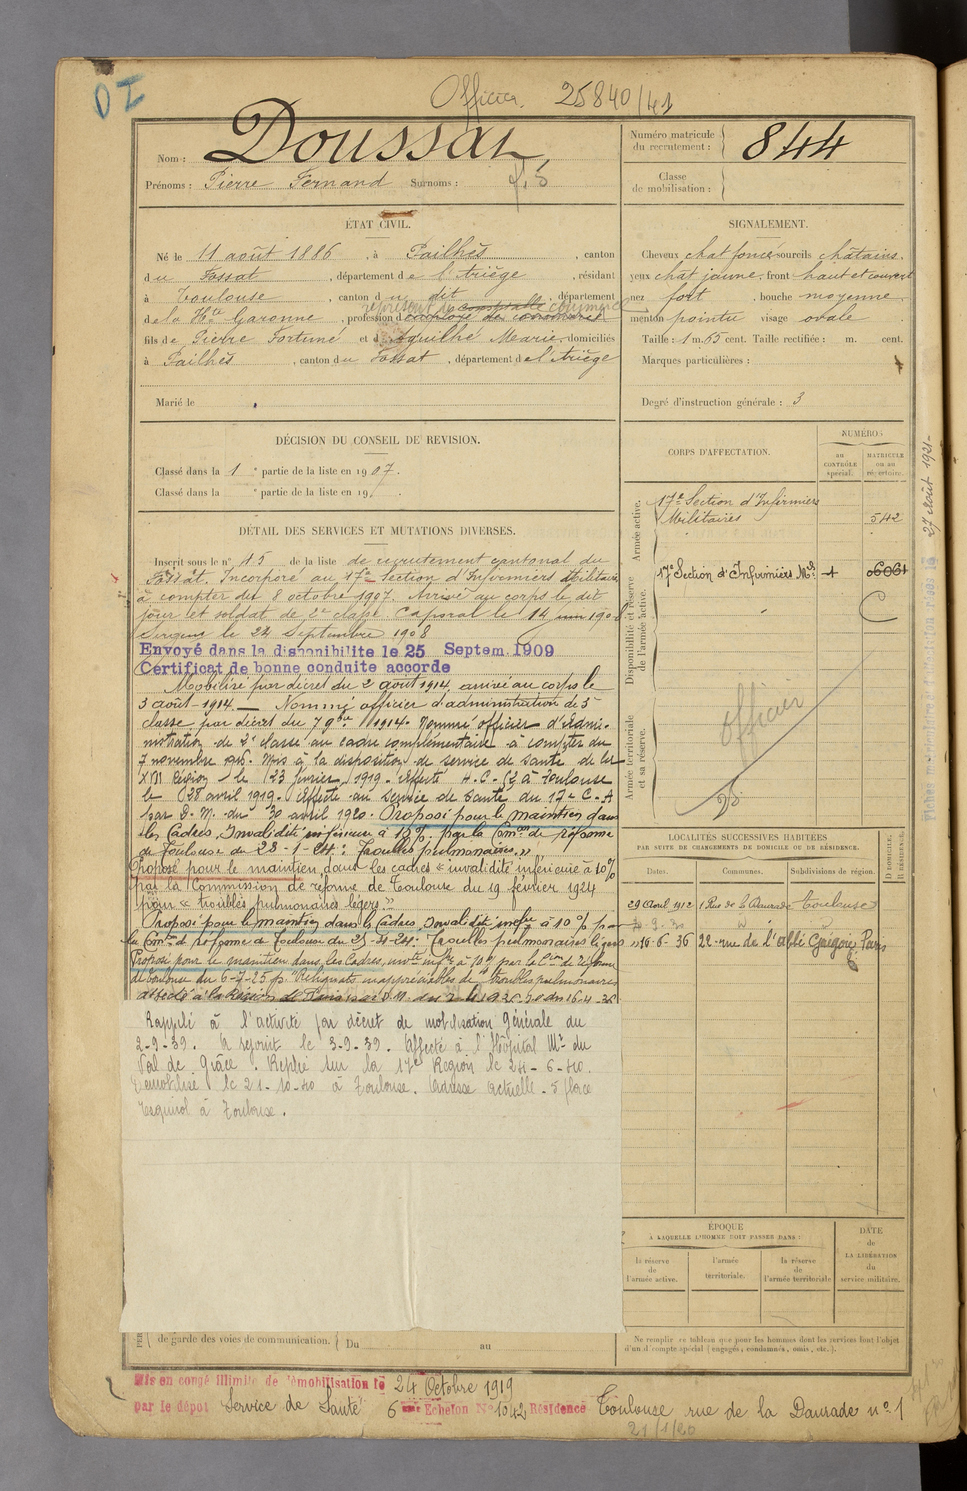 OI
Officier. 25840/41
Nom : Doussat
Prénoms : Pierre Fernand Surnoms :
Numéro matricule
du recrutement : 844
Classe
de mobilisation :
ÉTAT CIVIL.
Né le 11 août 1886, à Pailhès, canton
du Fossat, département de l'Ariège, résidant
à Toulouse, canton du dit, département
représent de commerce
de la Hte Garonne, profession d'employé de commerce
fils de Pierre Fortuné et d'Eguilhé Marie, domiciliés
à Pailhès, canton du Fossat, département de l'Ariège
Marié le
SIGNALEMENT.
Cheveux chat foncé sourcils châtains.
yeux chat jaune, front haut et couvert
nez fort, bouche moyenne,
menton pointu visage ovale
Taille : 1 m. 65 cent. Taille rectifiée : m. cent.
Marques particulières :
Degré d'instruction générale : 3
DÉCISION DU CONSEIL DE REVISION.
Classé dans la 1e partie de la liste en 1907.
Classé dans la e partie de la liste en 19 .
DÉTAIL DES SERVICES ET MUTATIONS DIVERSES.
Inscrit sous le n° 15 de la liste de recrutement cantonal du
Fossat. Incorporé au 17e Section d'Infirmiers Militaires
à compter du 8 octobre 1907. Arrivé au corps le dit
jour et soldat de 2e classe. Caporal le 14 juin 1908
Sergent le 22 Septembre 1908
Envoyé dans la disponibilite le 25 Septem. 1909
Certificat de bonne conduite accorde
Mobilisé par décret du 2 août 1914, arrivé au corps le
3 août 1914. — Nommé officier d'administration de 3
classe par décret du 7 9bre 1914. Nommé officier d'admi-
nistration de 2e classe au cadre complémentaire à compter du
7 novembre 1916. Mis à la disposition du service de santé de la
XVII Région le 23 février 1919. Affecté H.C. 62 à Toulouse
le 28 avril 1919. Affecté au Service de Santé du 17e C.A
par D.M. du 30 avril 1920. Proposé pour le maintien dans
les Cadres, Invalidité inférieure à 10%. par la Comon de réforme
de Toulouse du 28-1-24: Troubles pulmonaires.»
Proposé pour le maintien dans les cadres « invalidité inférieure à 10%
par la Commission de réforme de Toulouse du 19 février 1924
pour « troubles pulmonaires légers »
Proposé pour le maintien dans les Cadres, Invalidité infre à 10% par
la Comon de réforme de Toulouse du Troubles pulmonaires légers
Proposé pour le maintien dans les Cadres, invté infre à 10% par la Com de réforme
de Toulouse du 6-7-25 p. "Reliquats inappréciables de troubles pulmonaires
Affecté à la Région de Paris
Rappelé à l'activité par décret de mobilisation Générale du
2-9-39. A rejoint le 3-9-39. Affecté à l'Hôpital Mre du
Val de Grâce. Replié sur la 17e Région le 24-6-40.
Démobilisé le 21-10-40 à Toulouse. Adresse actuelle - 5 place
Esquirol à Toulouse.
CORPS D'AFFECTATION.
NUMÉROS
au
CONTRÔLE
spécial.
MATRICULE
ou au
répertoire.
Armée active.
17e Section d'Infirmiers
Militaires 542
Disponibilité et réserve
de l'armée active.
17e Section d'Infirmiers Mres 06061
Armée territoriale
et sa réserve.
Officier
27 août 1921
LOCALITÉS SUCCESSIVES HABITÉES
PAR SUITE DE CHANGEMENTS DE DOMICILE OU DE RÉSIDENCE.
Dates. Communes. Subdivisions de région.
DOMICILE.
RÉSIDENCE.
29 Aout 1912 1 Rue de la Daurade Toulouse
16-6-36 22 rue de l'abbé Grégoire Paris
ÉPOQUE
À LAQUELLE L'HOMME DOIT PASSER DANS :
DATE
de
LA LIBÉRATION
du
service militaire.
la réserve
de
l'armée active.
l'armée
territoriale.
la réserve
de
l'armée territoriale
Ne remplir ce tableau que pour les hommes dont les services font l'objet
d'un décompte spécial (engagés, condamnés, omis, etc.).
de garde des voies de communication. Du au
Mis en congé illimité de démobilisation le 24 Octobre 1919
par le dépôt Service de Santé 6me Echelon N° 1042 Résidence Toulouse rue de la Daurade n° 1
21/1/20